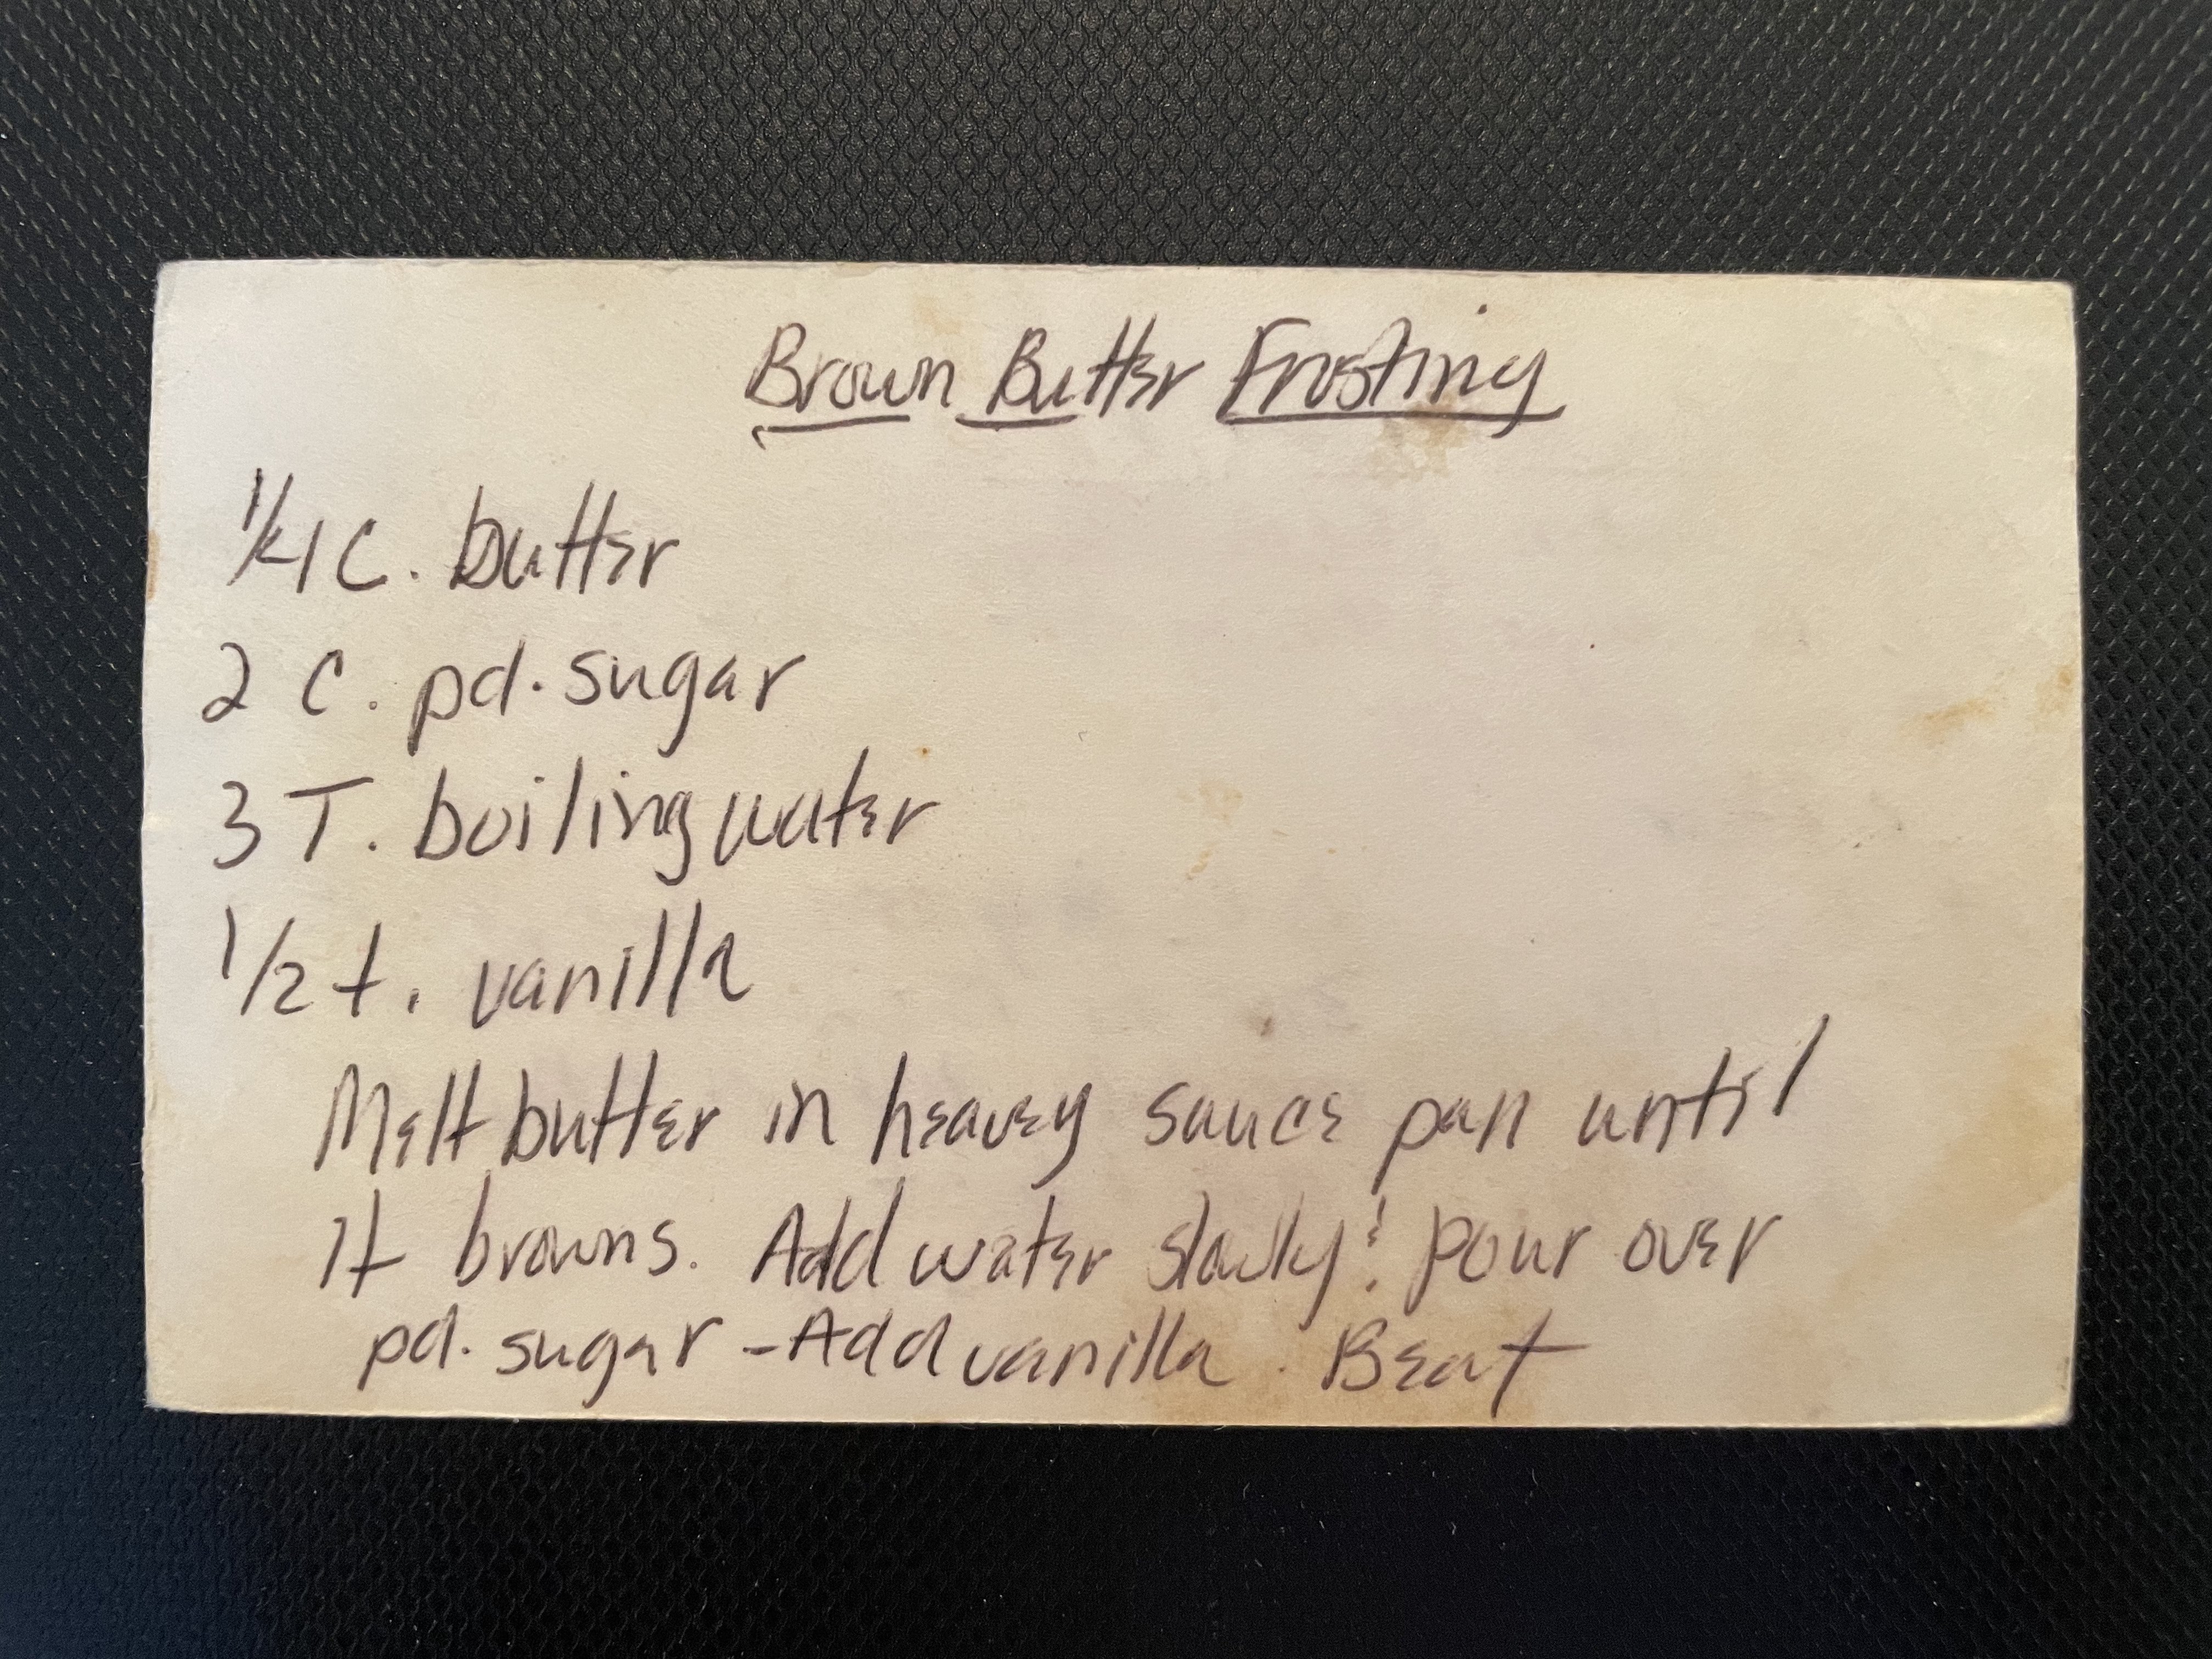 Brown Butter Frosting
1/4 C. butter
2 C. pd. sugar
3 T. boiling water
1/2 t. vanilla
Melt butter in heavy sauce pan until
it browns. Add water slowly & pour over
pd. sugar - Add vanilla. Beat